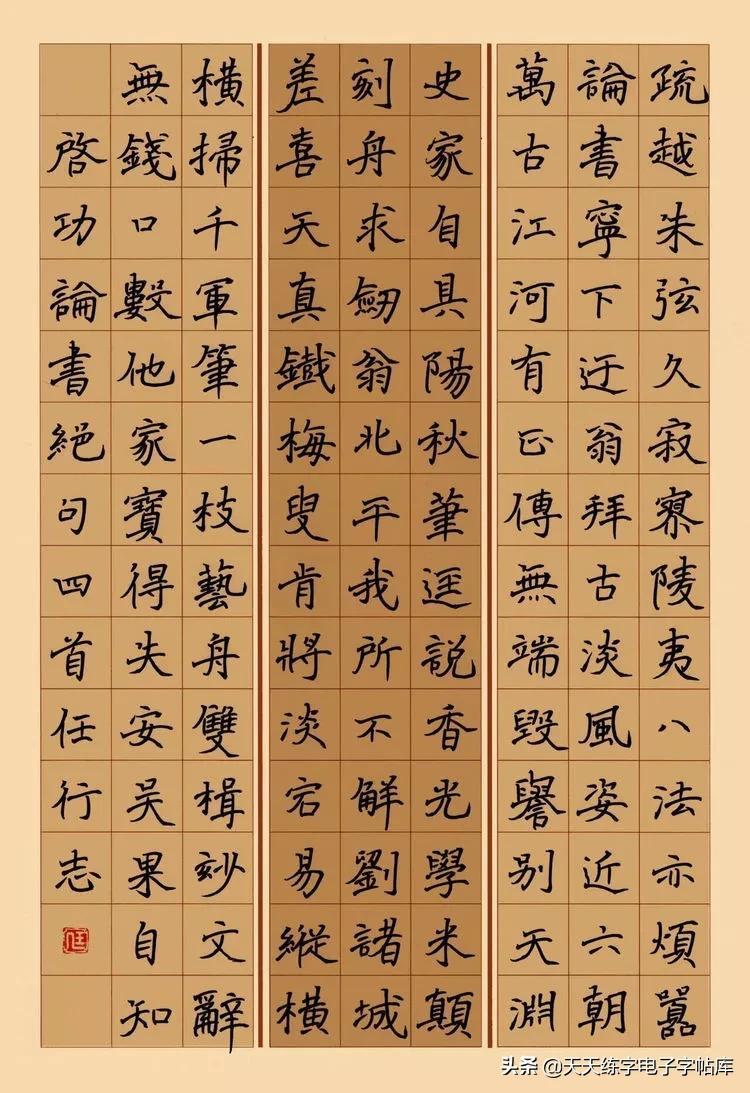 疏越朱弦久寂寥陵夷八法亦煩囂
論書寧下迂翁拜古淡風姿近六朝
萬古江河有正傳無端毀譽別天淵
史家自具陽秋筆逕說香光學米顛
刻舟求劒翁北平我所不解劉諸城
差喜天真鐵梅叟肯將淡宕易縱橫
橫掃千軍筆一枝藝舟雙楫玅文辭
無錢口數他家寶得失安吳果自知
啓功論書絕句四首任行志
头条 @天天练字电子字帖库